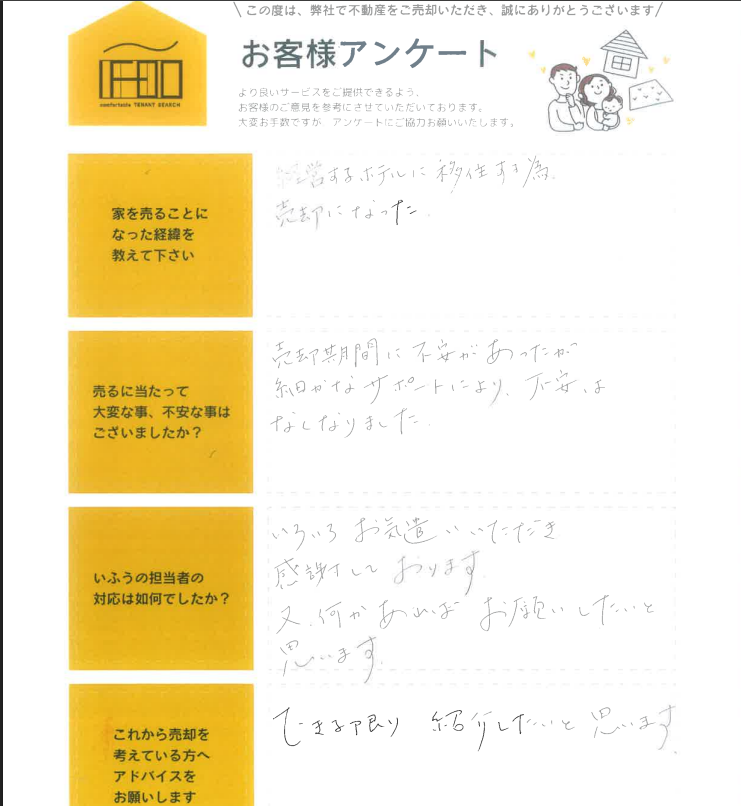 この度は、弊社で不動産をご売却いただき、誠にありがとうございます
お客様アンケート
comfortable TENANT SEARCH
より良いサービスをご提供できるよう、
お客様のご意見を参考にさせていただいております。
大変お手数ですが アンケートにご協力お願いいたします。
家を売ることに
なった経緯を
教えて下さい
経営するホテルに移住する為
売却になった.
売るに当たって
大変な事、不安な事は
ございましたか？
売却期間に不安があったが
細かなサポートにより、不安は
なくなりました.
いふうの担当者の
対応は如何でしたか？
いろいろ お気遣いいただき
感謝しております.
又、何かあればお願いしたいと
思います.
これから売却を
考えている方へ
アドバイスを
お願いします
できる限り 紹介したいと思います.